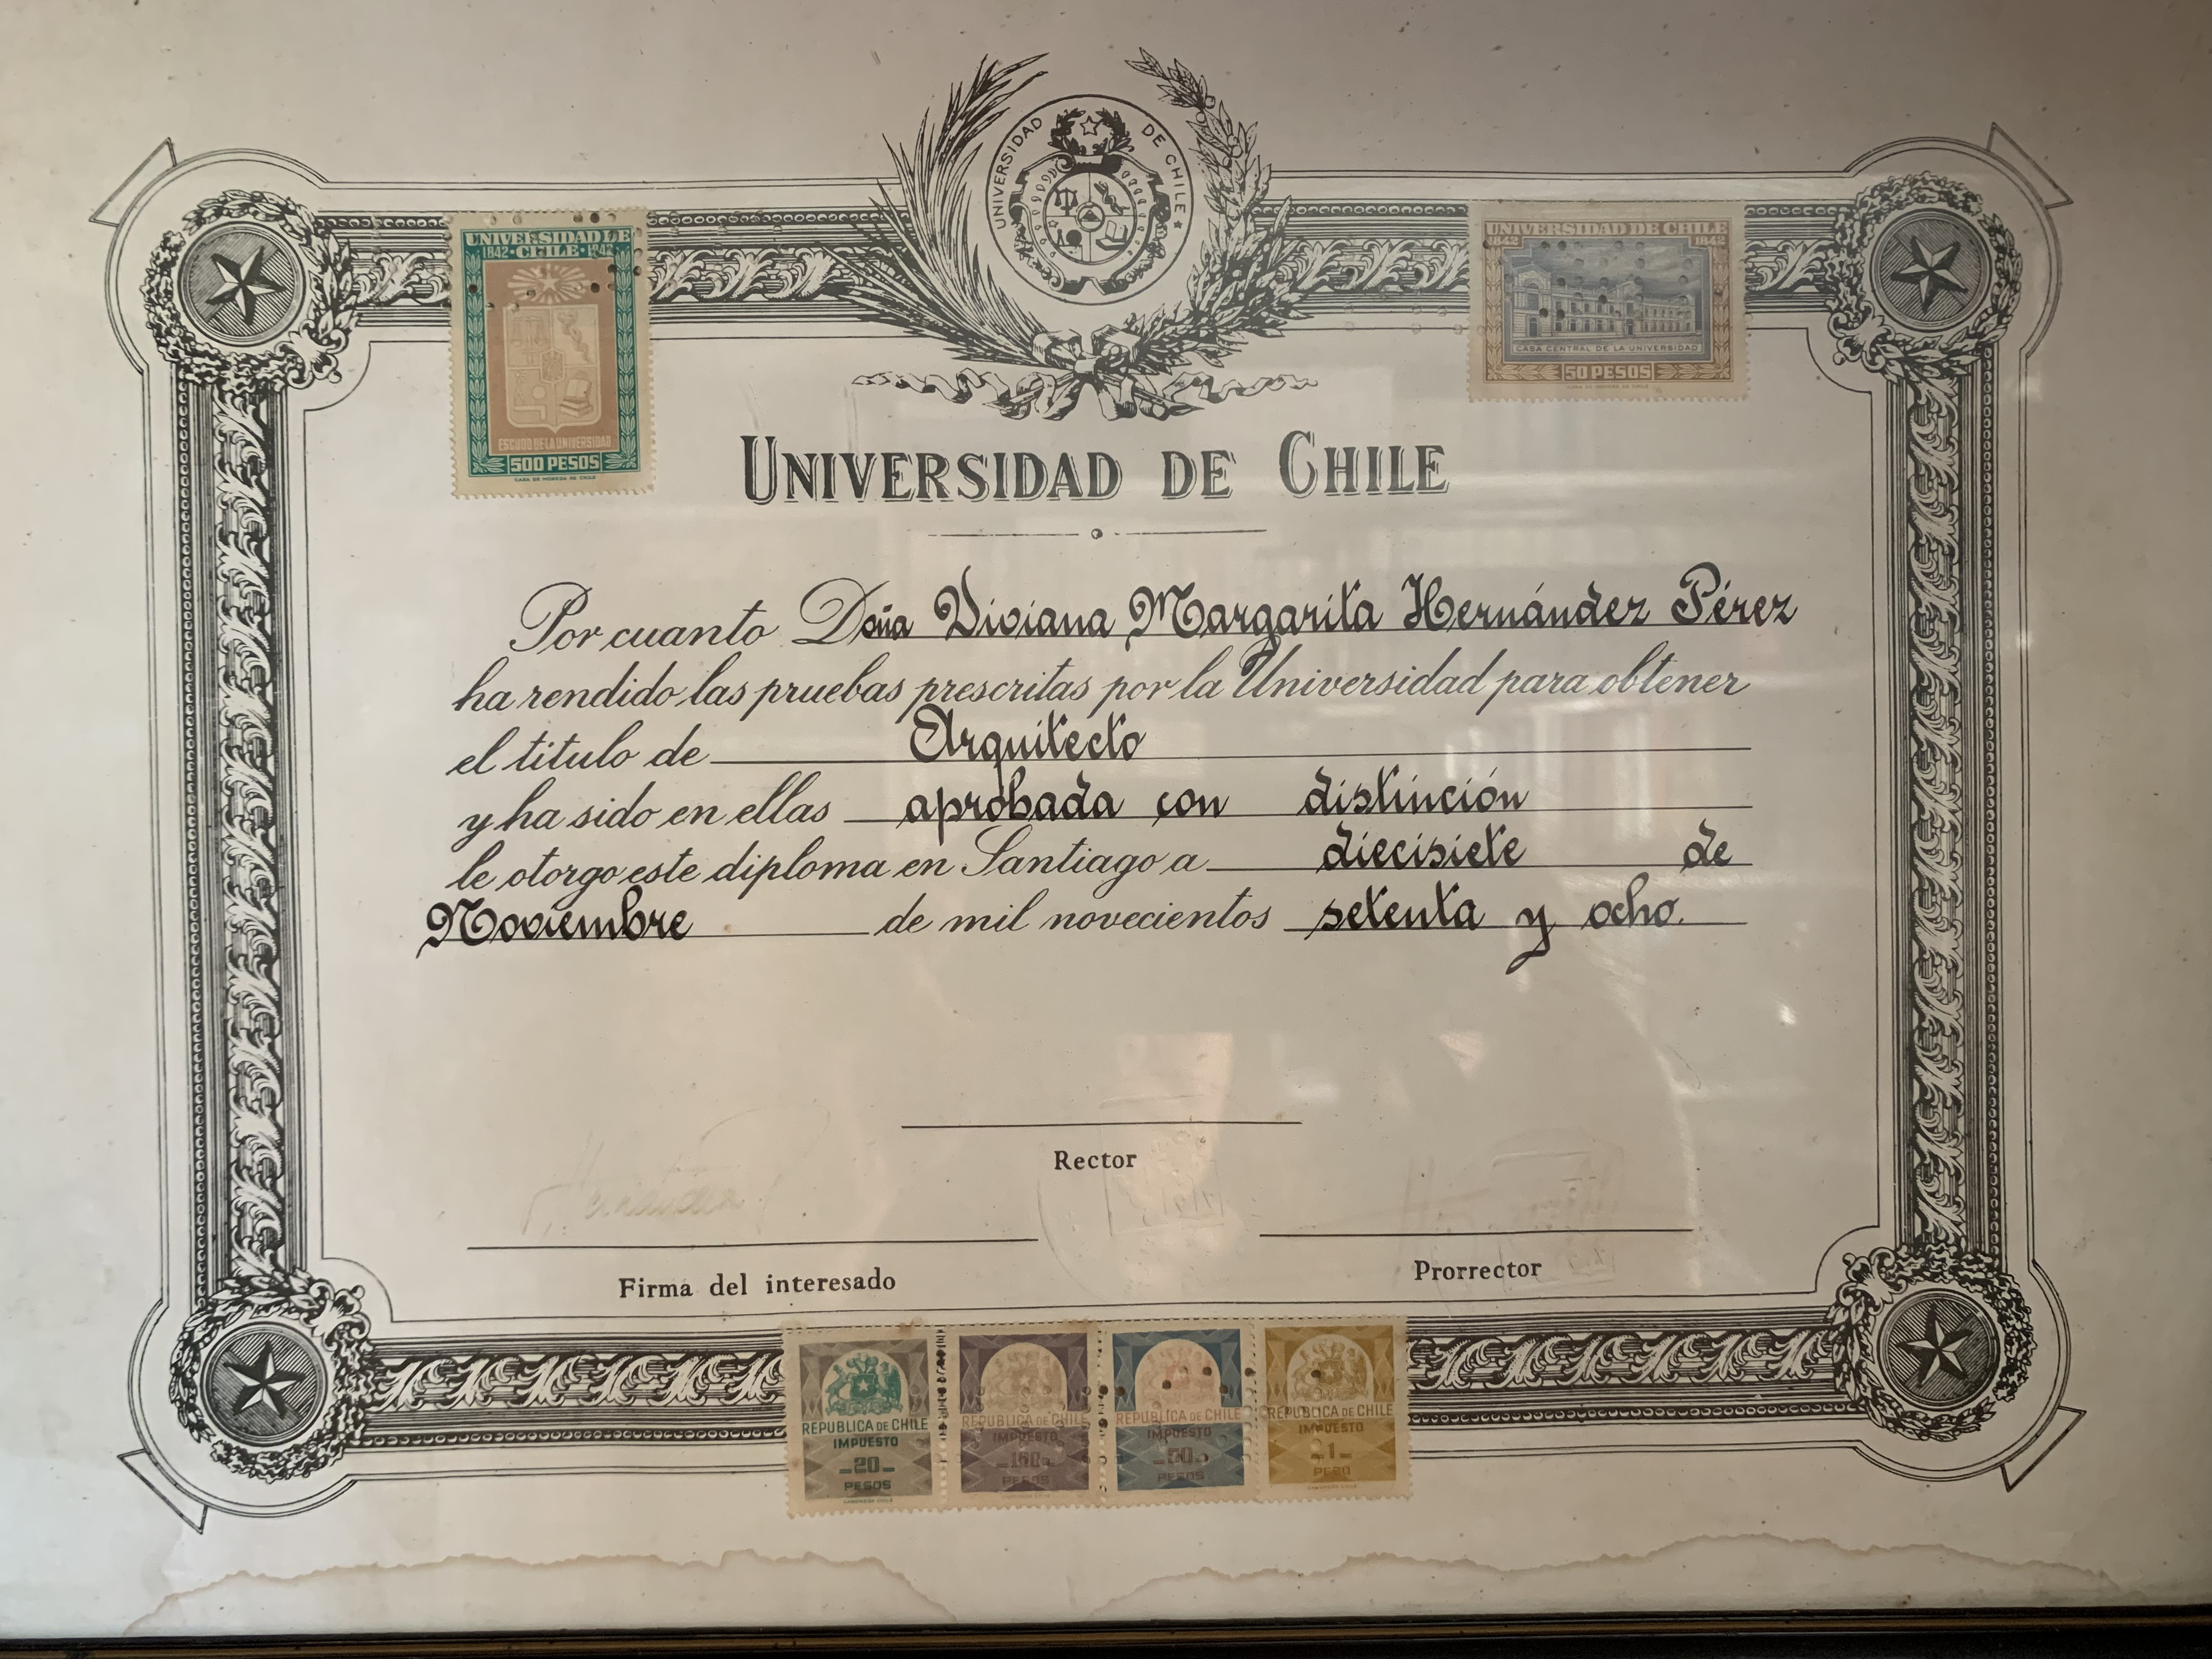 UNIVERSIDAD DE CHILE
UNIVERSIDAD DE
1842 · CHILE · 1842
ESCUDO DE LA UNIVERSIDAD
500 PESOS
CASA DE MONEDA DE CHILE
UNIVERSIDAD DE CHILE
1842 1842
CASA CENTRAL DE LA UNIVERSIDAD
50 PESOS
CASA DE MONEDA DE CHILE
UNIVERSIDAD DE CHILE
Por cuanto Doña Viviana Margarita Hernández Pérez
ha rendido las pruebas prescritas por la Universidad para obtener
el titulo de Arquitecto
y ha sido en ellas aprobada con distinción
le otorgo este diploma en Santiago a diecisiete de
Noviembre de mil novecientos setenta y ocho.
Rector
Firma del interesado
Prorrector
REPUBLICA DE CHILE
IMPUESTO
20
PESOS
REPUBLICA DE CHILE
IMPUESTO
PESOS
REPUBLICA DE CHILE
IMPUESTO
50
PESOS
REPUBLICA DE CHILE
IMPUESTO
1
PESO